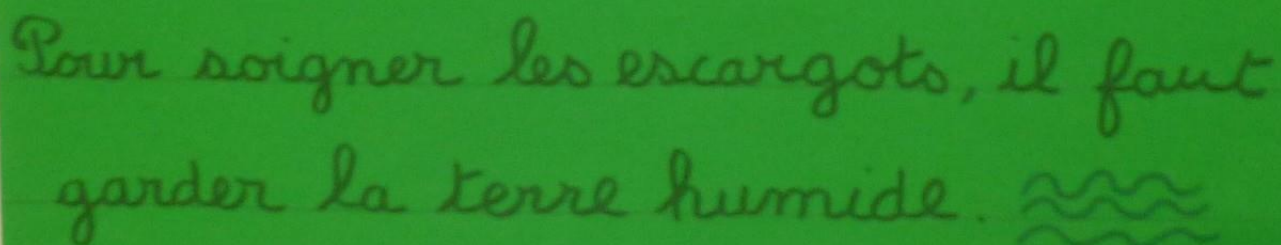 Pour soigner les escargots, il faut
garder la terre humide.